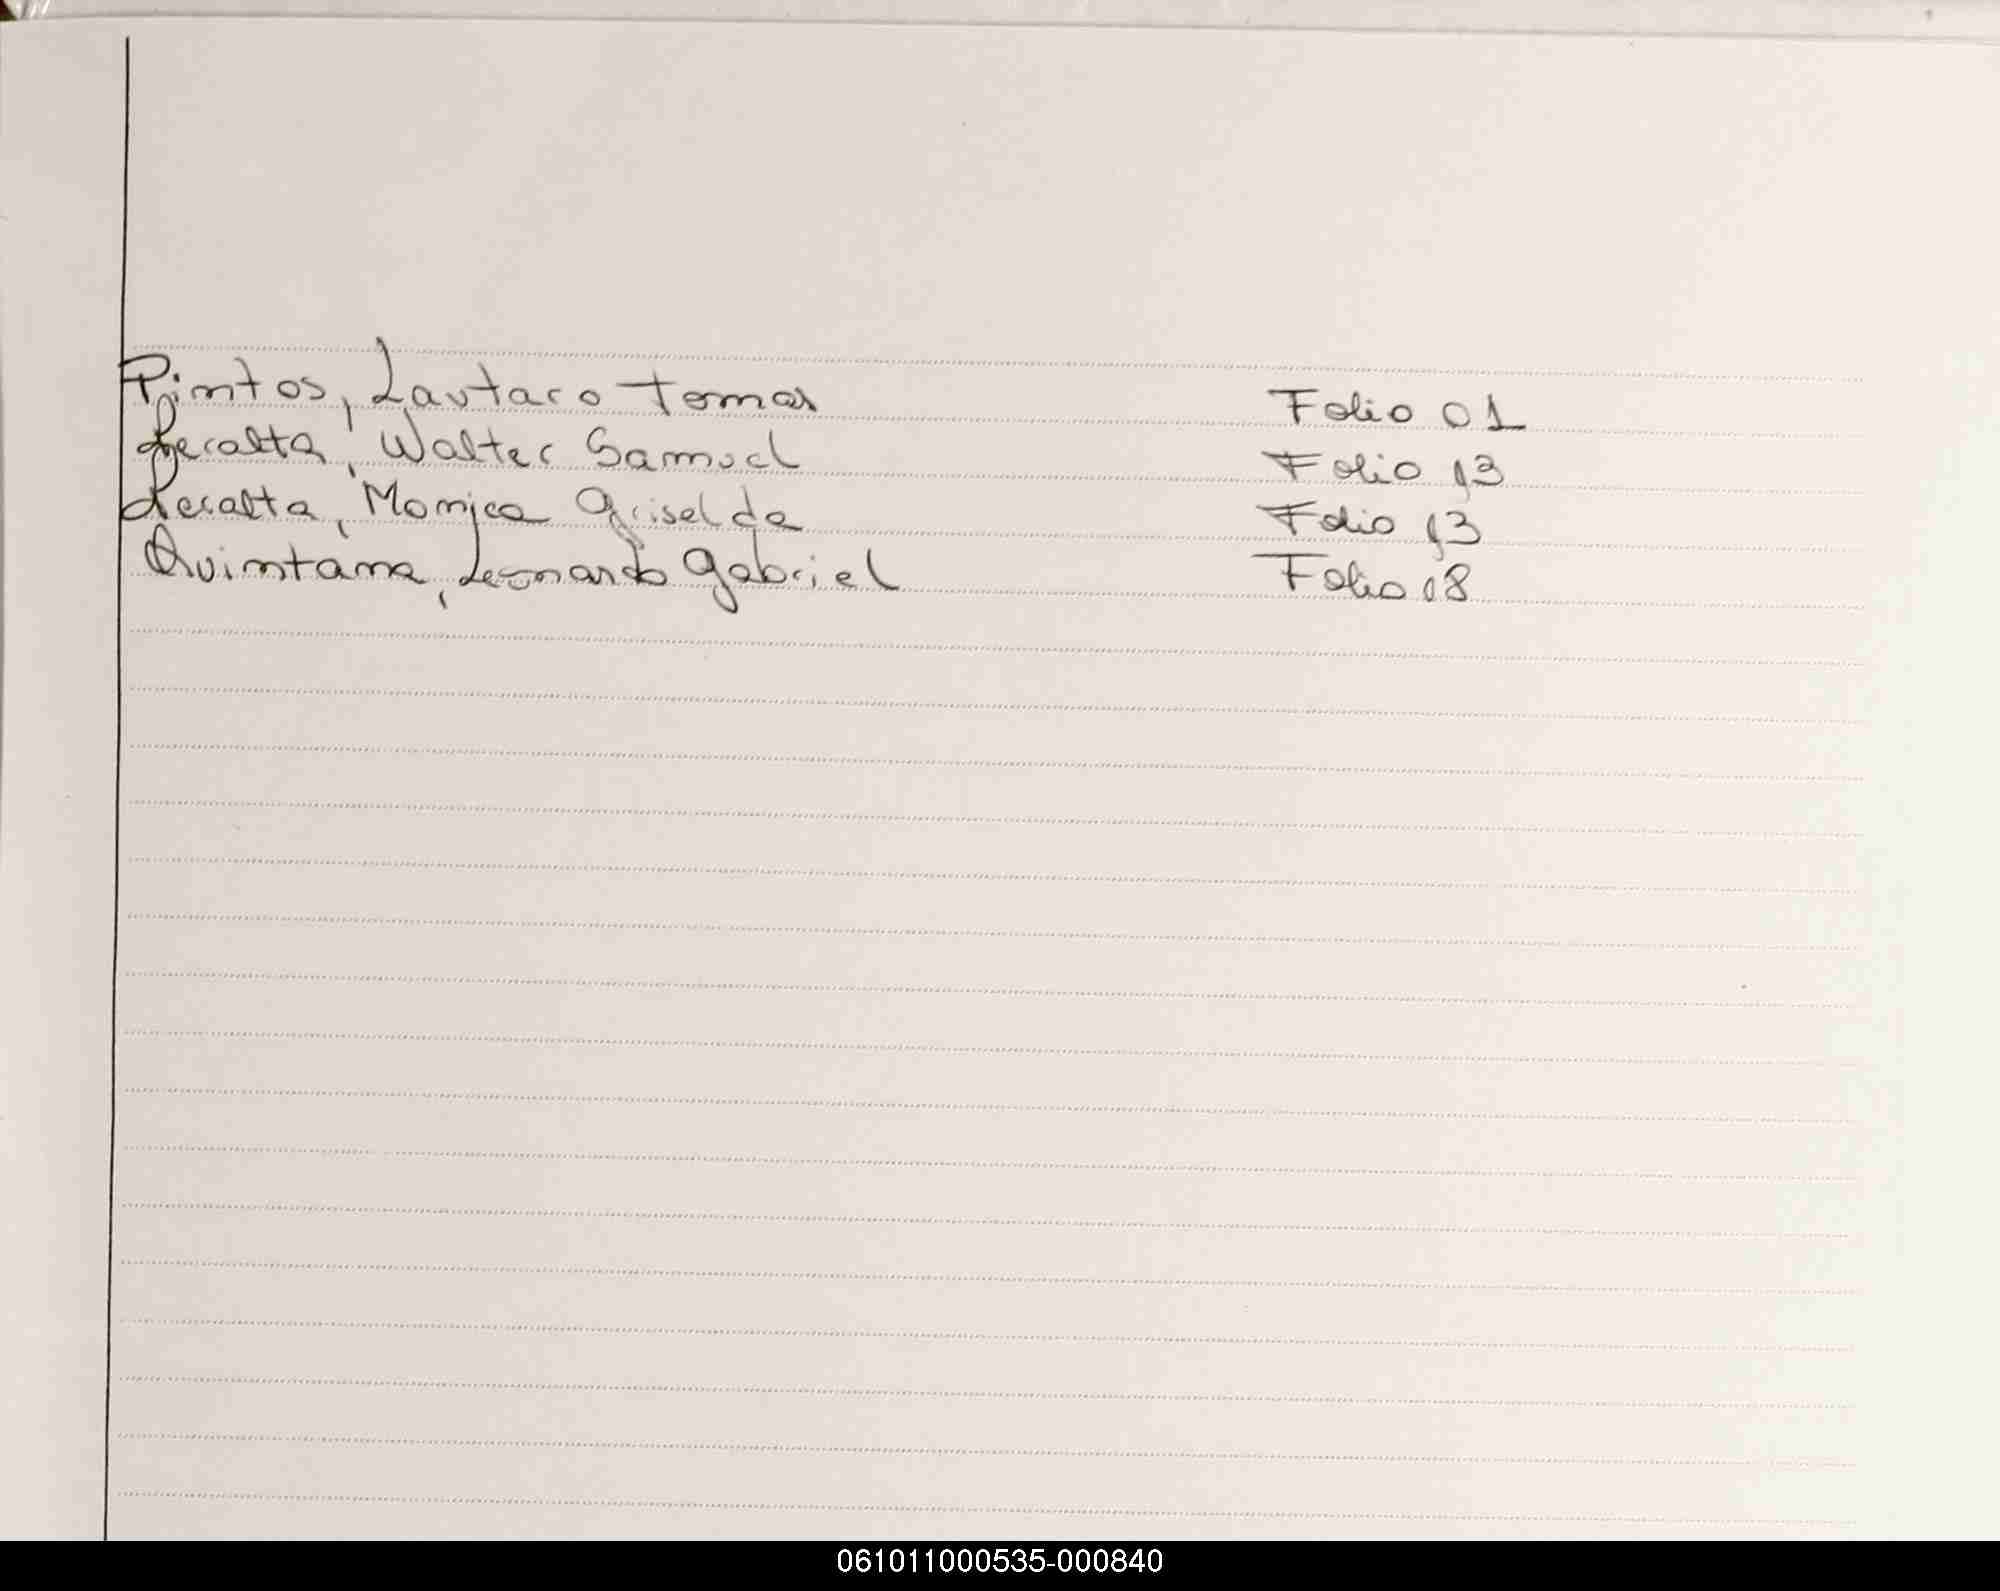 Pintos, Lautaro Tomas Folio 01
Peralta, Walter Samuel Folio 13
Peralta, Monica Griselda Folio 13
Quintana, Leonardo Gabriel Folio 18
061011000535-000840